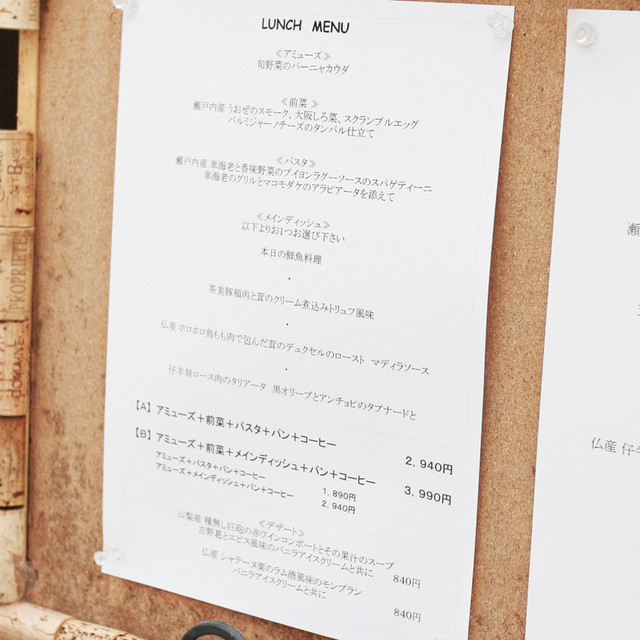 LUNCH MENU
≪アミューズ≫
旬野菜のバーニャカウダ
≪前菜≫
瀬戸内産うおぜのスモーク、大阪しろ菜、スクランブルエッグ
パルミジャーノチーズのタンバル仕立て
≪パスタ≫
瀬戸内産 車海老と香味野菜のブイヨンラグーソースのスパゲティーニ
車海老のグリルとマコモダケのアラビアータを添えて
≪メインディッシュ≫
以下よりお1つお選び下さい
本日の鮮魚料理
・
茶美豚頬肉と茸のクリーム煮込みトリュフ風味
・
仏産 ホロホロ鳥もも肉で包んだ茸のデュクセルのロースト マディラソース
・
仔羊肩ロース肉のタリアータ 黒オリーブとアンチョビのタプナードと
【A】アミューズ+前菜+パスタ+パン+コーヒー 2,940円
【B】アミューズ+前菜+メインディッシュ+パン+コーヒー 3,990円
アミューズ+パスタ+パン+コーヒー 1,890円
アミューズ+メインディッシュ+パン+コーヒー 2,940円
≪デザート≫
山梨産 種無し巨砲の赤ワインコンポートとその果汁のスープ
吉野葛とエビス風味のバニラアイスクリームと共に 840円
仏産 シャテーヌ栗のラム酒風味のモンブラン
バニラアイスクリームと共に 840円
瀬
仏産 仔牛
PROPRIETE
DOMAINE